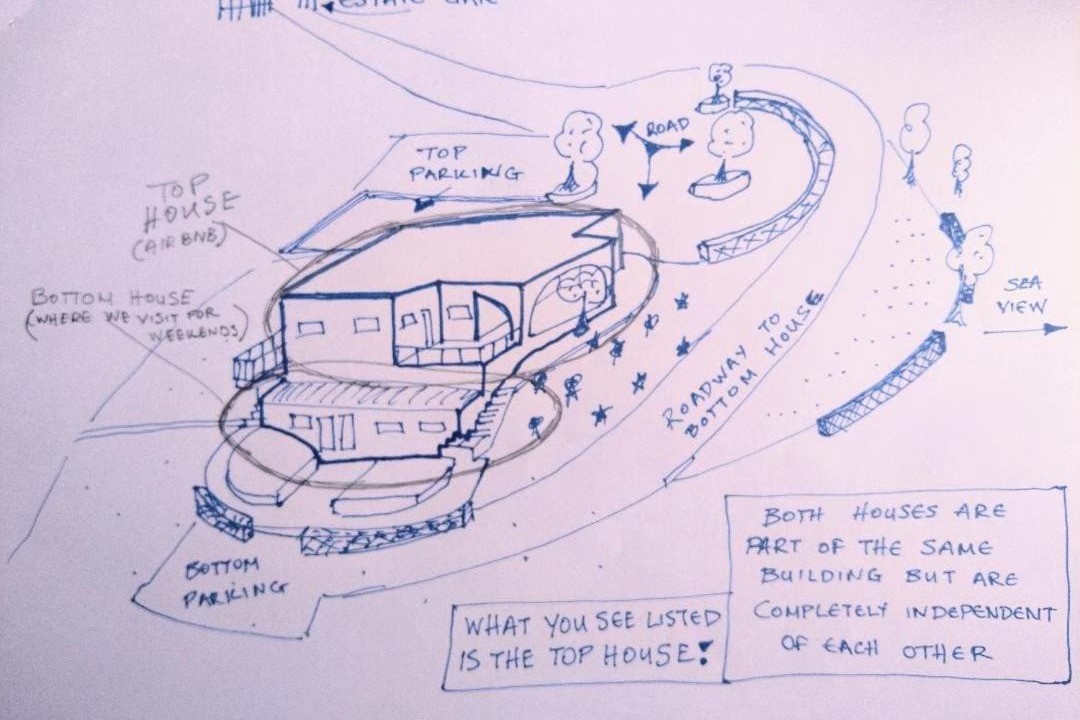 ESTATE GATE
ROAD
TOP
PARKING
TOP
HOUSE
(AIRBNB)
BOTTOM HOUSE
(WHERE WE VISIT FOR
WEEKENDS)
SEA
VIEW
ROADWAY TO
BOTTOM HOUSE
BOTTOM
PARKING
WHAT YOU SEE LISTED
IS THE TOP HOUSE!
BOTH HOUSES ARE
PART OF THE SAME
BUILDING BUT ARE
COMPLETELY INDEPENDENT
OF EACH OTHER